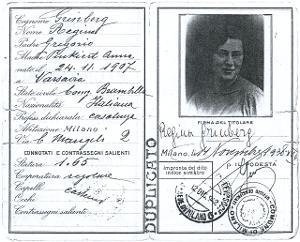 Cognome Grinberg
Nome Regina
Padre Gregorio
Madre Pinkiert Anna
nato il 24.11.1907
a Varsavia
Stato civile Coniug. Brambilla
Nazionalità Italiana
Profess. dichiarata casalinga
Abitazione Milano
Via C. Mangili 2
CONNOTATI E CONTRASSEGNI SALIENTI
Statura 1.65
Corporatura regolare
Capelli castani
Occhi
Contrassegni salienti
DUPLICATO
FIRMA DEL TITOLARE
Regina Grinberg
Milano, li Novembre 1938
p. IL PODESTÀ
Impronta del dito
indice sinistro